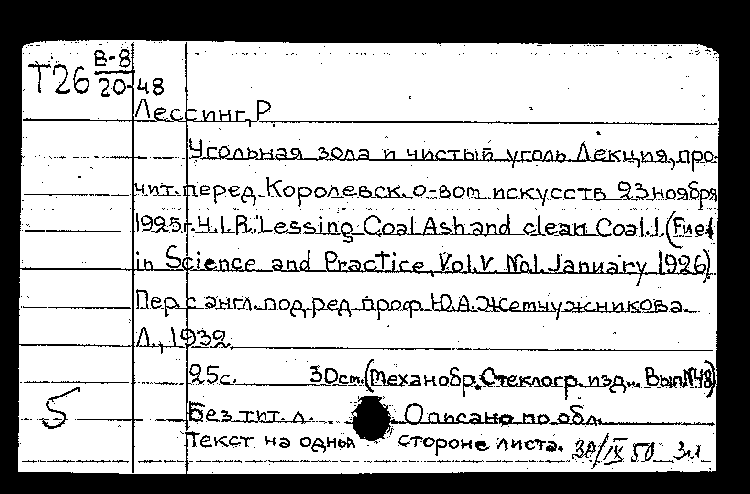 Т26 В-8
20-48
Лессинг, Р.
Угольная зола и чистый уголь. Лекция, про-
чит. перед Королевск. о-вом искусств 23 ноября
1925 г. Ч. I. R. Lessing Coal Ash and clean Coal. I. (Fuel
in Science and Practice, Vol. V. No 1. January 1926).
Пер. с англ. под ред. проф. Ю.А. Жемчужникова.
Л., 1932.
25 с. 30 см. (Механобр. Стеклогр. изд.. Вып. № 48)
5 Без тит. л. Описано по обл.
Текст на одной стороне листа. 30/IX 50